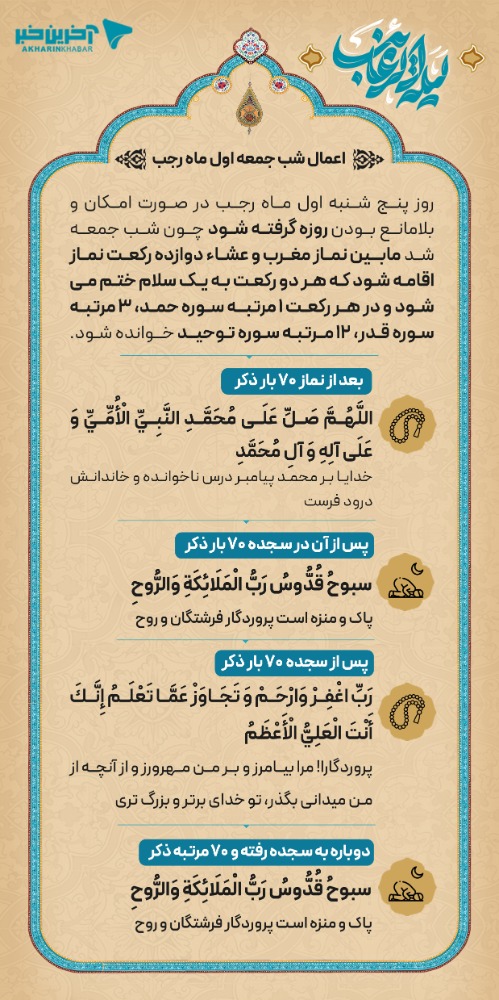 آخرین خبر
AKHARINKHABAR
لیلة الرغائب
اعمال شب جمعه اول ماه رجب
روز پنج شنبه اول ماه رجب در صورت امکان و
بلامانع بودن روزه گرفته شود چون شب جمعه
شد مابین نماز مغرب و عشاء دوازده رکعت نماز
اقامه شود که هر دو رکعت به یک سلام ختم می
شود و در هر رکعت ۱ مرتبه سوره حمد، ۳ مرتبه
سوره قدر، ۱۲ مرتبه سوره توحید خوانده شود.
بعد از نماز ۷۰ بار ذکر
اللَّهُمَّ صَلِّ عَلَى مُحَمَّدٍ النَّبِيِّ الْأُمِّيِّ وَ
عَلَى آلِهِ وَ آلِ مُحَمَّدٍ
خدایا بر محمد پیامبر درس ناخوانده و خاندانش
درود فرست
پس از آن در سجده ۷۰ بار ذکر
سبوحُ قُدُّوسُ رَبُّ الْمَلَائِكَةِ وَالرُّوحِ
پاک و منزه است پروردگار فرشتگان و روح
پس از سجده ۷۰ بار ذکر
رَبِّ اغْفِرْ وَارْحَمْ وَ تَجَاوَزْ عَمَّا تَعْلَمُ إِنَّكَ
أَنْتَ الْعَلِيُّ الْأَعْظَمُ
پروردگارا! مرا بیامرز و بر من مهرورز و از آنچه از
من میدانی بگذر، تو خدای برتر و بزرگ تری
دوباره به سجده رفته و ۷۰ مرتبه ذکر
سبوحُ قُدُّوسُ رَبُّ الْمَلَائِكَةِ وَالرُّوحِ
پاک و منزه است پروردگار فرشتگان و روح